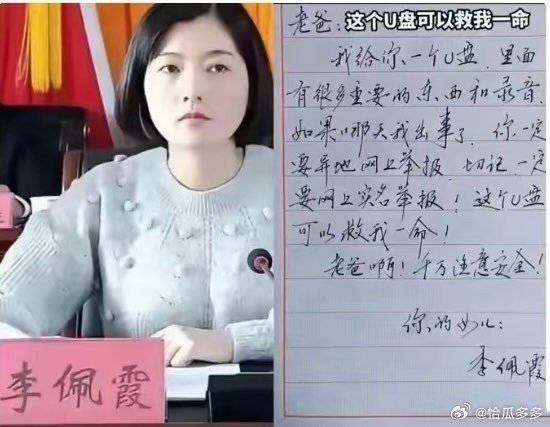 李佩霞
这个U盘可以救我一命
老爸：
我给你一个U盘，里面
有很多重要的东西和录音，
如果哪天我出事了，你一定
要异地网上举报，切记，一定
要网上实名举报！这个U盘
可以救我一命！
老爸啊！千万注意安全！
你的女儿：
李佩霞
@恰瓜多多